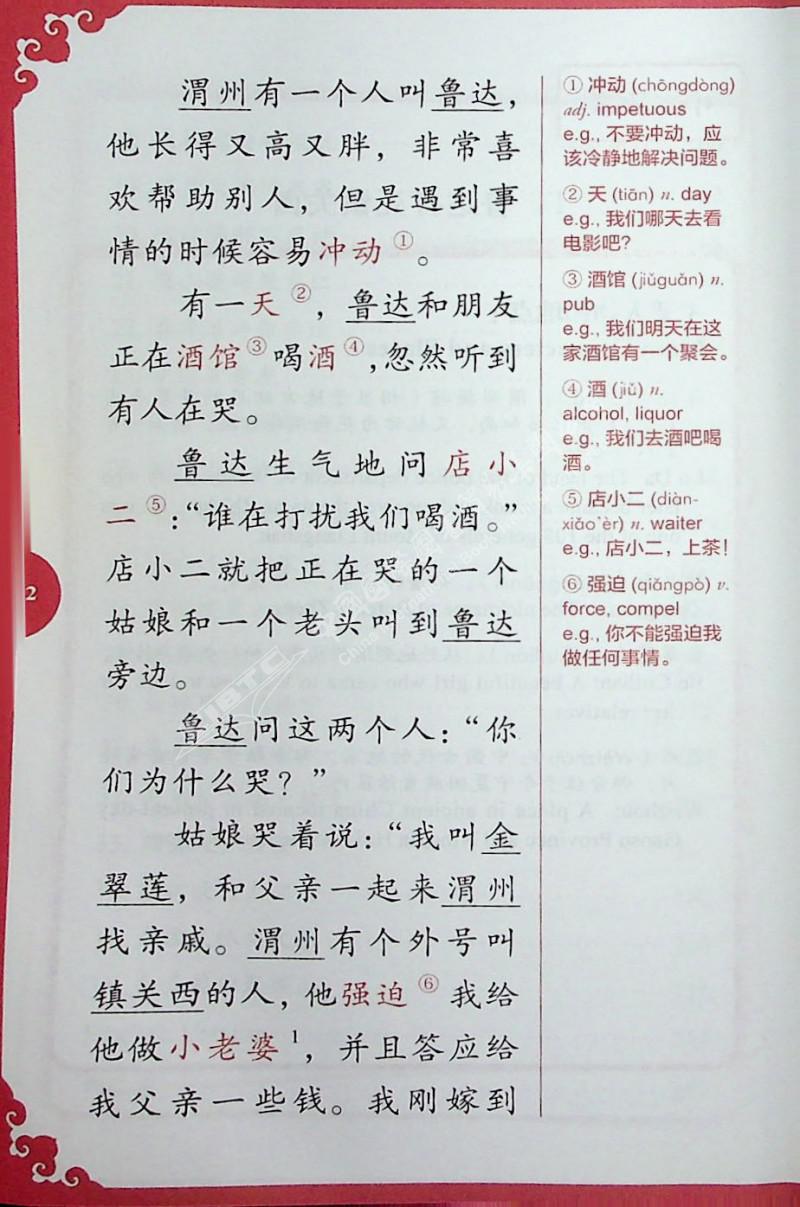 渭州有一个人叫鲁达，
他长得又高又胖，非常喜
欢帮助别人，但是遇到事
情的时候容易冲动①。
有一天②，鲁达和朋友
正在酒馆③喝酒④,忽然听到
有人在哭。
鲁达生气地问店小
二⑤:“谁在打扰我们喝酒。”
店小二就把正在哭的一个
姑娘和一个老头叫到鲁达
旁边。
鲁达问这两个人：“你
们为什么哭？”
姑娘哭着说：“我叫金
翠莲，和父亲一起来渭州
找亲戚。渭州有个外号叫
镇关西的人，他强迫⑥我给
他做小老婆1，并且答应给
我父亲一些钱。我刚嫁到
① 冲动 (chōngdòng)
adj. impetuous
e.g., 不要冲动，应
该冷静地解决问题。
② 天 (tiān) n. day
e.g., 我们哪天去看
电影吧?
③ 酒馆 (jiǔguǎn) n.
pub
e.g., 我们明天在这
家酒馆有一个聚会。
④ 酒 (jiǔ) n.
alcohol, liquor
e.g., 我们去酒吧喝
酒。
⑤ 店小二 (diàn-
xiǎo'èr) n. waiter
e.g., 店小二，上茶！
⑥ 强迫 (qiǎngpò) v.
force, compel
e.g., 你不能强迫我
做任何事情。
2